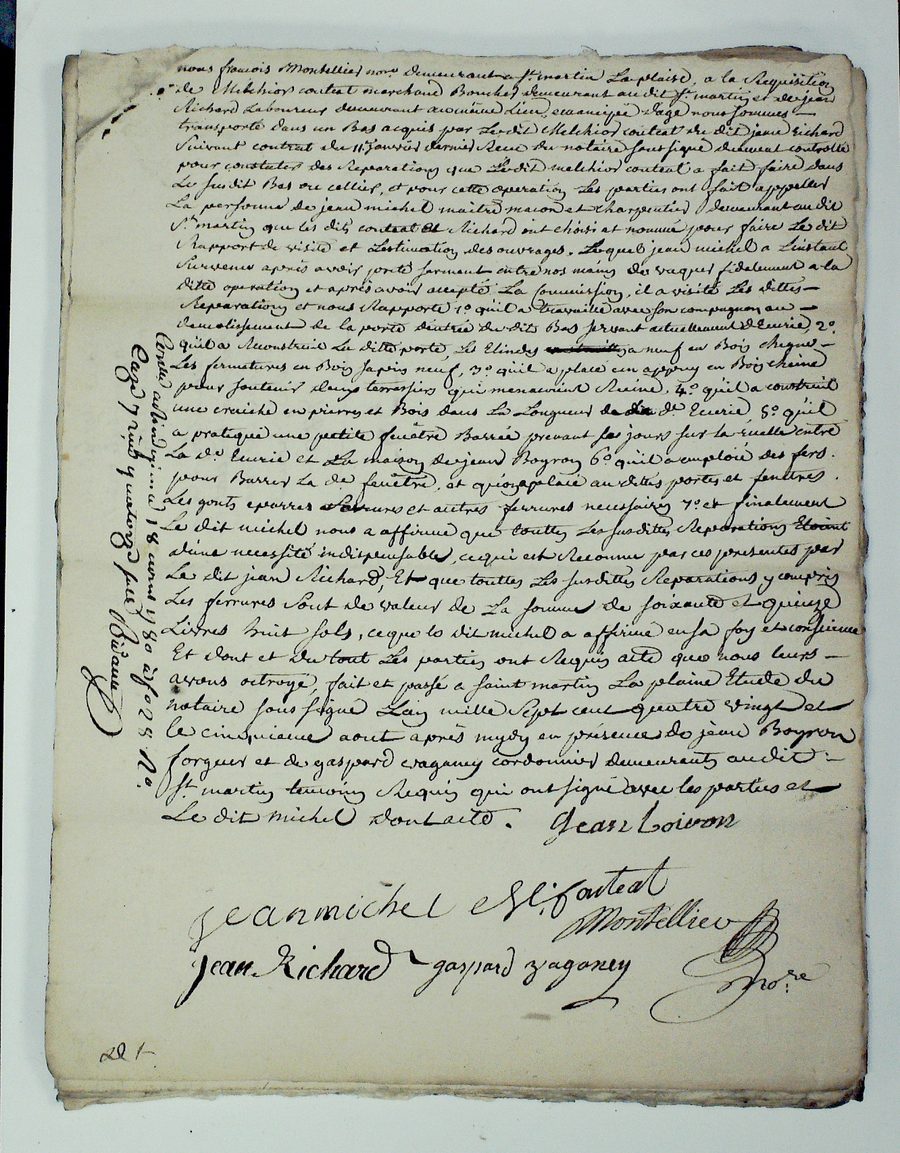 nous françois Montellier nore. demeurant a St. martin La plaine, a la Requisition
de Melchior couteat marchand Boucher demeurant au dit St. martin et de jean
Richard Laboureur demeurant au même Lieu, emancipé d'age nous sommes —
transporté dans un Bas acquis par Le dit Melchior couteat du dit jean Richard
Suivant contrat du 11e janvier dernier Receu du notaire soussigné duement controllé
pour constater des Reparations que Le dit melchior couteat a fait faire dans
Le susdit Bas ou cellier, et pour cette operation Les parties ont fait appeller
La personne de jean michel maitre macon et charpentier demeurant au dit
St. martin que les dits couteat et Richard ont choisi et nommé pour faire Le dit
Rapport de visite et Lestimation des ouvrages. Le quel jean michel a Linstant
Survenu après avoir preté serment entre nos mains de vaquer fidelement a la
ditte operation et après avoir accepté La Commission, il a visité Les dittes —
Reparations et nous Rapporte 1o. quil a travaillé avec son compagnon au —
demolissement de la porte d'entrée du dit Bas servant actuellement d'Ecurie, 2o.
quil a Reconstruit La ditte porte, Les Elindes a neuf en Bois chegne —
Les fermetures en Bois sapin neuf, 3o. quil a placé un appuy en Bois cheine
pour soutenir deux terrassiers qui menacoient Ruine, 4o. quil a construit
une creiche en pierres et Bois dans La Longueur de de. Ecurie 5o. quil
a pratiqué une petite fenêtre Barrée prenant ses jours sur la Ruelle entre
La de. Ecurie et La maison de jean Boyron 6o. quil a emploié des fers.
pour Barrer La de. fenêtre, et quil a placé au dittes portes et fenetres.
Les gonts eparres Serrures et autres ferrures necessaires 7o. et finalement
Le dit michel nous a affirmé que touttes Les susdittes Reparations Etoient
d'une necessité indispensable, ce qui est Reconnu par ces presentes par
Le dit jean Richard, Et que touttes Les susdittes Reparations y compris
Les ferrures sont de valeur de La somme de soixante et quinze
Livres huit sols, ce que le dit michel a affirmé en sa foy et conscience
Et dont et du tout Les parties ont Requis acte que nous leurs —
avons octroyé, fait et passé a saint martin La plaine Etude du
notaire soussigné Lan mille Sept cent quatre vingt et
le cinquieme aout après mydy en présence de jean Boyron
forgeur et de gaspard vaganey cordonnier demeurants au dit —
St. martin temoins Requis qui ont signé avec les parties et
Le dit michel dont acte. Jean boiron
Jean michel M. couteat
Montellier
jean Richard gaspard vaganey
nore
Controllé a
1780
Reçu quatorze sols